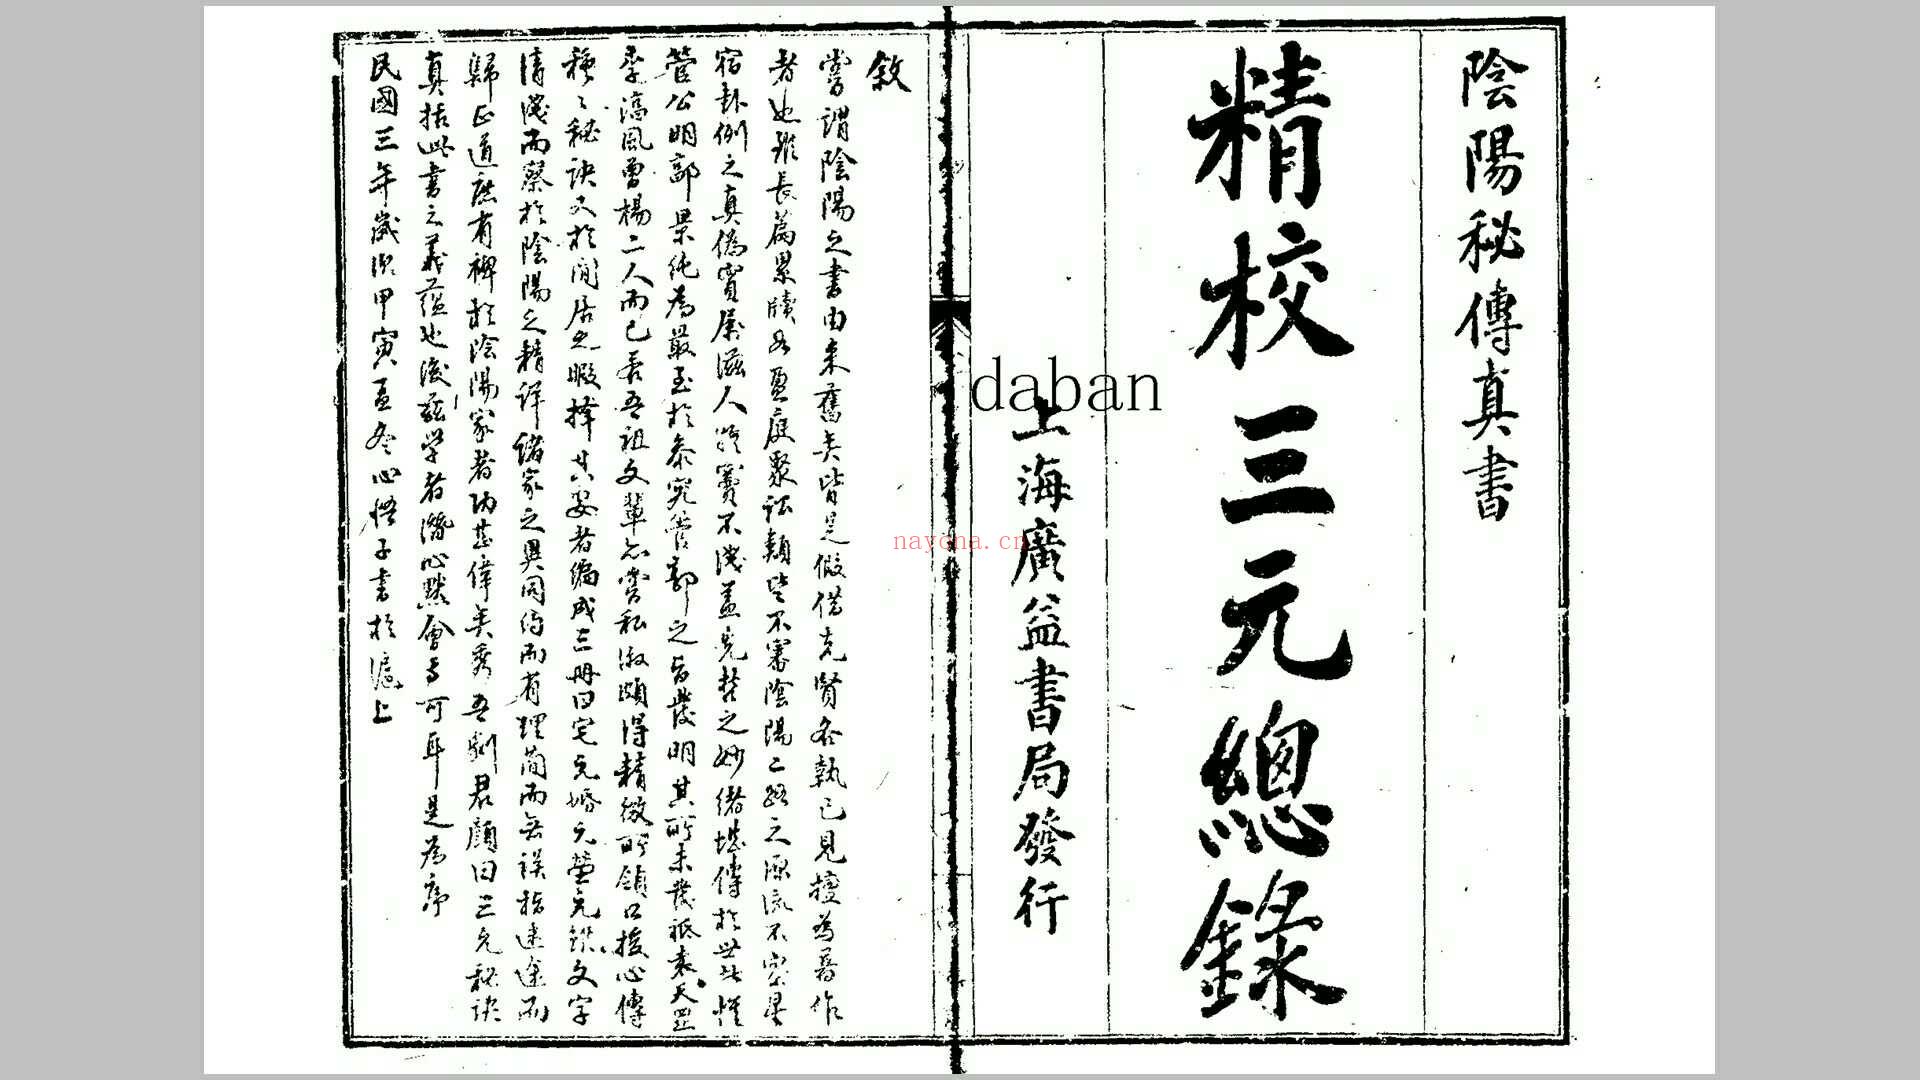 陰陽秘傳真書
精校三元總錄
上海廣益書局發行
daban
nayona.cn
敘
嘗謂陰陽之書由來舊矣皆是假借先賢各執已見擅為著作
者也雖長篇累牘充盈庭聚訟類皆不審陰陽二路之源流不察星
宿卦例之真偽實屬滋人疑竇不淺蓋先哲之妙緒堪傳於世者惟
管公明郭景純為最至於參究管郭之旨發明其所未發祇袁天罡
李淳風曾楊二人而已吾祖文輩亦嘗私淑頗得精微所鎮口授心傳
種種秘訣又於閒居之暇擇其要者編成三冊曰宅元婚元塋元雖文字
清淺而蔡於陰陽之精詳諸家之異同均而有理簡而無誤指迷途而
歸正道庶有裨於陰陽家者功甚偉矣秀吾劉君顏曰三元秘訣
真括此書之義蘊也後茲學者潛心默會焉可耳是為序
民國三年歲次甲寅孟冬心悟子書於滬上